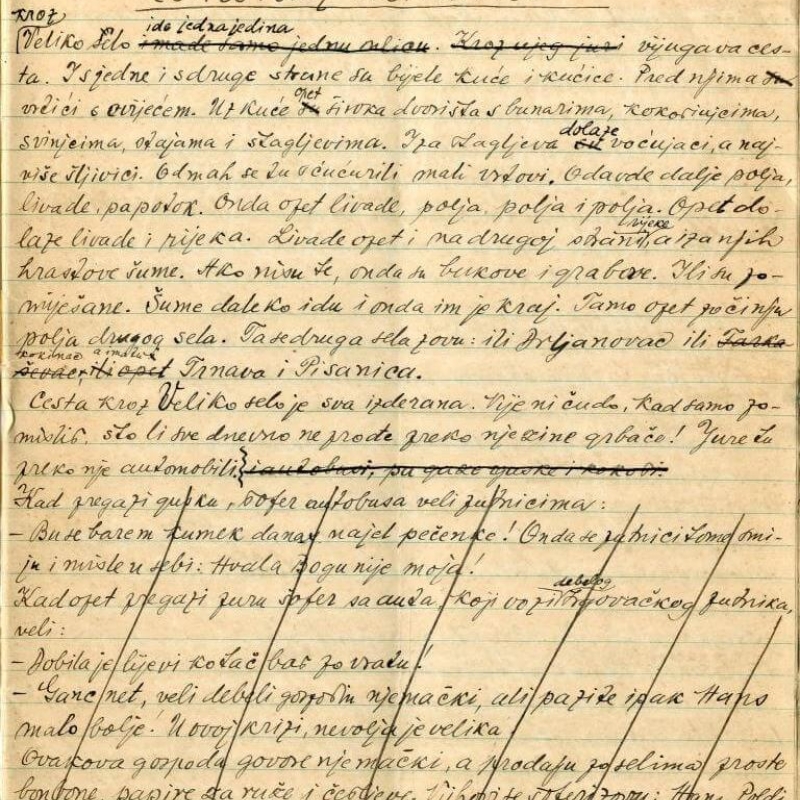 kroz ide jedna jedina
Veliko selo imade samo jednu ulicu. Kroz njeg juri vijugava ces-
ta. I s jedne i s druge strane su bijele kuće i kućice. Pred njima su
opet
vrtići s cvijećem. Uz kuće su široka dvorišta s bunarima, kokošinjcima,
dolaze
svinjcima, stajama i štagljevima. Iza štagljeva su voćnjaci, a naj-
više šljivici. Odmah se tu šćućurili mali vrtovi. Odavde dalje polja,
livade, pa potok. Onda opet livade, polja, polja i polja. Opet do-
rijeke
laze livade i rijeka. Livade opet i na drugoj strani, a iza njih
hrastove šume. Ako nisu te, onda su bukove i grabove. Ili su po-
miješane. Šume daleko idu i onda im je kraj. Tamo opet počinju
polja drugog sela. Ta se druga sela zovu: ili Drljanovac ili
ili opet Trnava i Pisanica.
Cesta kroz Veliko selo je sva izderana. Nije ni čudo, kad samo po-
misliš, što li sve dnevno ne prođe preko njezine grbače! Jure tu
preko nje automobili i autobusi, pa gaze guske i kokoši.
Kad pregazi gusku, šofer autobusa veli putnicima:
– Bu se barem kumek danas najel pečenke! Onda se putnici tome smi-
ju i misle u sebi: Hvala Bogu nije moja!
debelog
Kad opet pregazi puru šofer sa auta, koji vozi trgovačkog putnika,
veli:
– Dobila je lijevi kotač baš po vratu!
– Ganc net, veli debeli gospodin njemački, ali pazite ipak Hans
malo bolje! U ovoj krizi, nevolja je velika!
Ovakova gospoda govore njemački, a prodaju po selima proste
bonbone, papire za ruže i češljeve. Hans